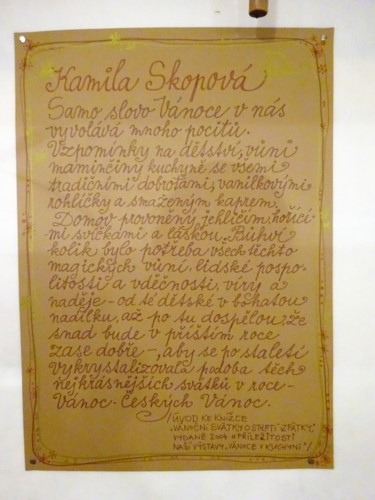 Kamila Skopová
Samo slovo Vánoce v nás
vyvolává mnoho pocitů.
Vzpomínky na dětství, vůni
maminčiny kuchyně se všemi
tradičními dobrotami, vanilkovými
rohlíčky a smaženým kaprem.
Domov provoněný jehličím, hořící-
mi svíčkami a láskou. Bůhví
kolik bylo potřeba všech těchto
magických vůní, lidské pospo-
litosti a vděčnosti, víry a
naděje - od té dětské v bohatou
nadílku, až po tu dospělou, že
snad bude v příštím roce
zase dobře -, aby se po staletí
vykrystalizovala podoba těch
nejkrásnějších svátků v roce -
Vánoc. Českých Vánoc.
/ÚVOD KE KNÍŽCE
"VÁNOČNÍ SVÁTKY O STOLETÍ ZPÁTKY,"
VYDANÉ 2004 U PŘÍLEŽITOSTI
NAŠÍ VÝSTAVY "VÁNOCE V KUCHYNI"/